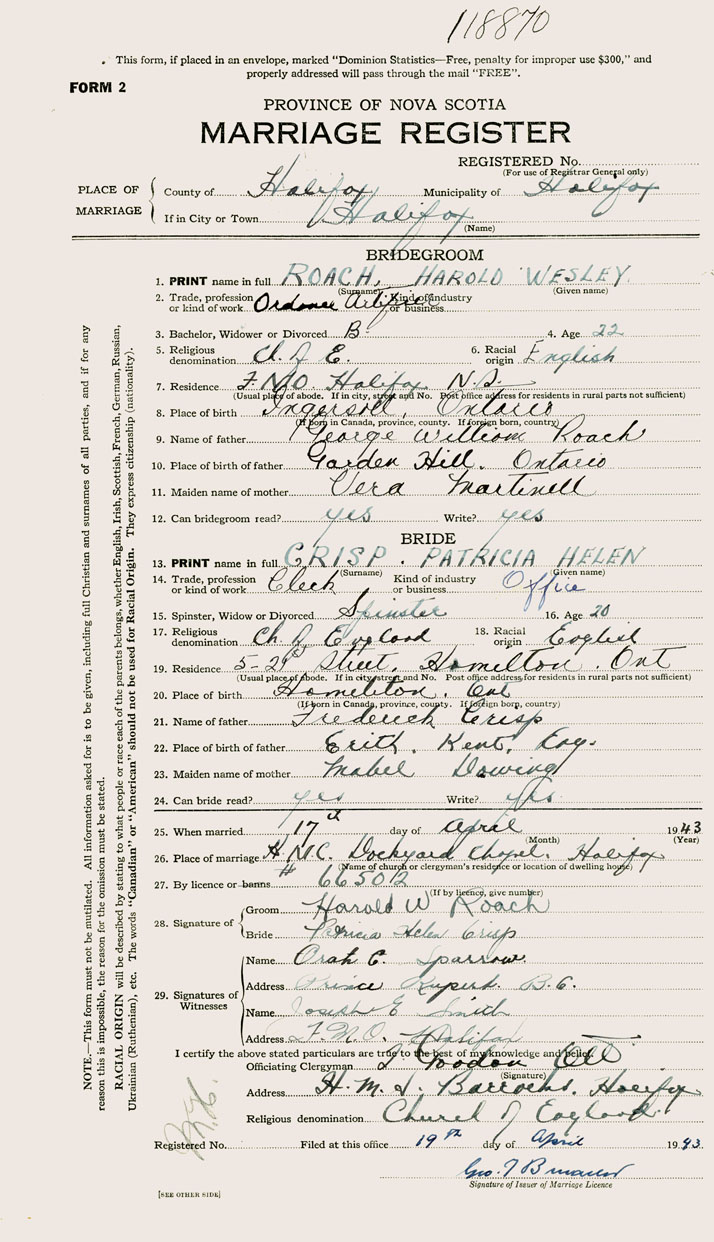 118870
This form, if placed in an envelope, marked "Dominion Statistics—Free, penalty for improper use $300," and
properly addressed will pass through the mail "FREE".
FORM 2
PROVINCE OF NOVA SCOTIA
MARRIAGE REGISTER
REGISTERED No.
(For use of Registrar General only)
PLACE OF MARRIAGE
County of Halifax Municipality of Halifax
If in City or Town Halifax
(Name)
BRIDEGROOM
1. PRINT name in full ROACH, HAROLD WESLEY
(Surname) (Given name)
2. Trade, profession or kind of work Ordnance Artificer Kind of industry or business
3. Bachelor, Widower or Divorced B. 4. Age 22
5. Religious denomination Ch. of E. 6. Racial origin English
7. Residence F.M.O. Halifax N.S.
(Usual place of abode. If in city, street and No. Post office address for residents in rural parts not sufficient)
8. Place of birth Ingersoll, Ontario
(If born in Canada, province, county. If foreign born, country)
9. Name of father George William Roach
10. Place of birth of father Garden Hill. Ontario
11. Maiden name of mother Vera Martinell
12. Can bridegroom read? yes Write? yes
BRIDE
13. PRINT name in full CRISP. PATRICIA HELEN
(Surname) (Given name)
14. Trade, profession or kind of work Clerk Kind of industry or business Office
15. Spinster, Widow or Divorced Spinster 16. Age 20
17. Religious denomination Ch. of England 18. Racial origin English
19. Residence 5-21st Street, Hamilton. Ont
(Usual place of abode. If in city street and No. Post office address for residents in rural parts not sufficient)
20. Place of birth Hamilton. Ont
(If born in Canada, province, county. If foreign born, country)
21. Name of father Frederick Crisp
22. Place of birth of father Erith. Kent. Eng.
23. Maiden name of mother Mabel Dowing
24. Can bride read? yes Write? yes
25. When married 17th day of April 1943
(Month) (Year)
26. Place of marriage H.M.C. Dockyard Chapel. Halifax
(Name of church or clergyman's residence or location of dwelling house)
27. By licence or banns # 66501/2
(If by licence, give number)
28. Signature of
Groom Harold W Roach
Bride Patricia Helen Crisp
29. Signatures of Witnesses
Name Orah C. Sparrow
Address Prince Rupert. B.C.
Name Joseph E Smith
Address F.M.O. Halifax
I certify the above stated particulars are true to the best of my knowledge and belief.
Officiating Clergyman Gordon Ott
(Signature)
Address H.M.S. Barrochs. Halifax
Religious denomination Church of England
Registered No. Filed at this office 19th day of April 1943
Geo.
Signature of Issuer of Marriage Licence
[SEE OTHER SIDE]
NOTE.—This form must not be mutilated. All information asked for is to be given, including full Christian and surnames of all parties, and if for any
reason this is impossible, the reason for the omission must be stated.
RACIAL ORIGIN will be described by stating to what people or race each of the parents belongs, whether English, Irish, Scottish, French, German, Russian,
Ukrainian (Ruthenian), etc. The words "Canadian" or "American" should not be used for Racial Origin. They express citizenship (nationality).